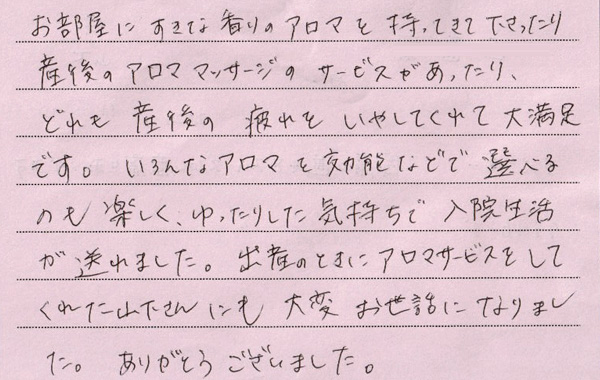 お部屋にすきな香りのアロマを持ってきて下さったり
産後のアロママッサージのサービスがあったり、
どれも産後の疲れをいやしてくれて大満足
です。いろんなアロマを効能などで選べる
のも楽しく、ゆったりした気持ちで入院生活
が送れました。出産のときにアロマサービスをして
くれた山下さんにも大変お世話になりまし
た。ありがとうございました。